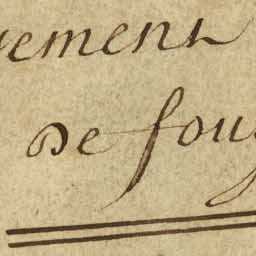 vement
De foug